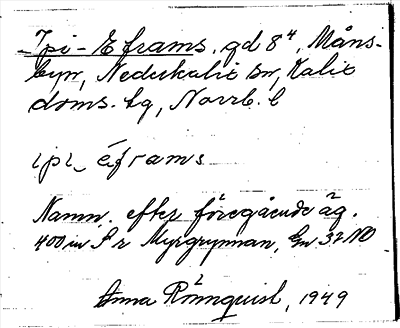 Ipi-Eframs, gd 8⁴, Måns-
byn, Nederkalix sn, Kalix
doms. tg, Norrb. l
ipi_ éframs
Namn. efter föregående äg.
400 m S r Myrgrynnan, Gm 32 NO
Anna Rönnquist, 1949